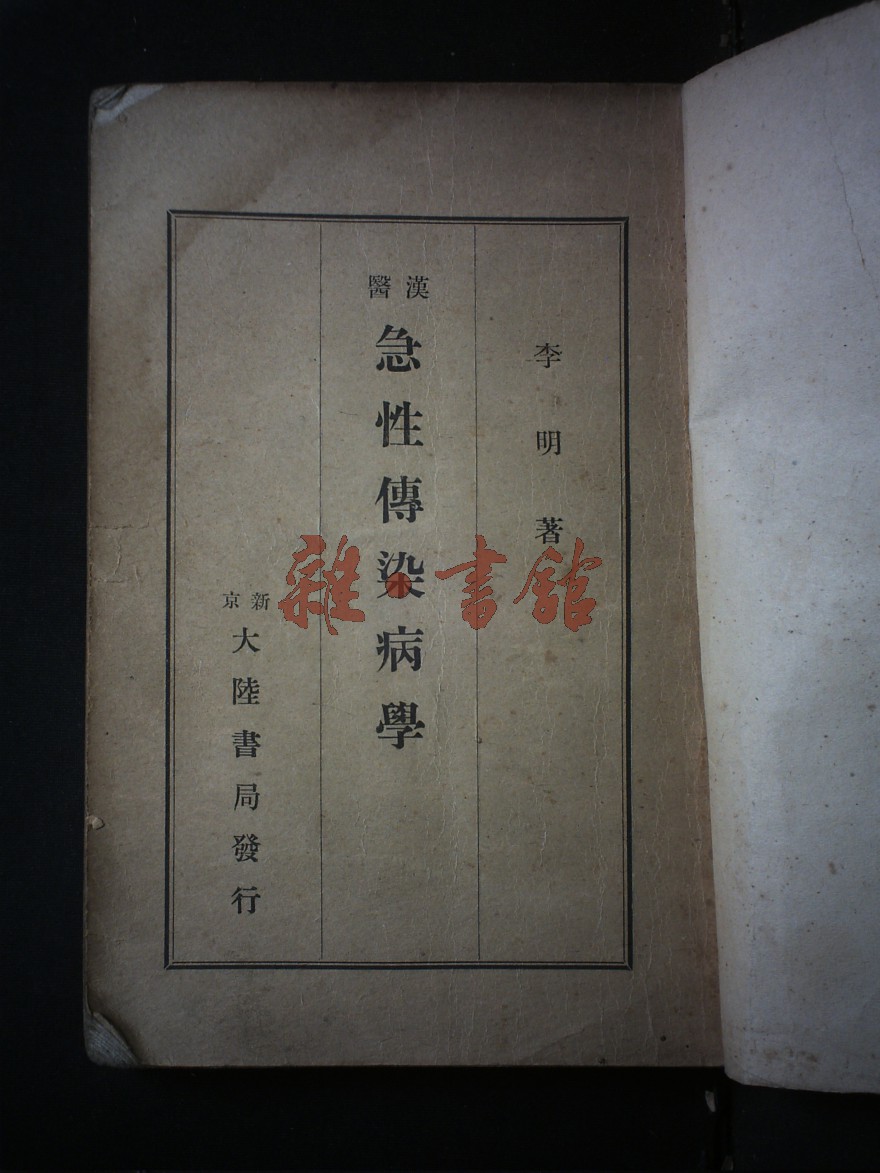 李明著
漢醫
急性傳染病學
新京
大陸書局發行
雜書館